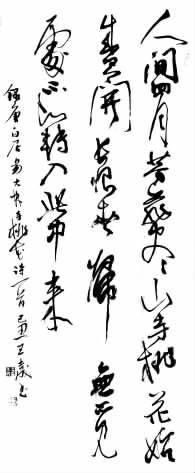 人間四月芳菲尽山寺桃花始
盛開長恨春歸無覓
處不知轉入此中來
錄唐白居易大林寺桃花诗一首